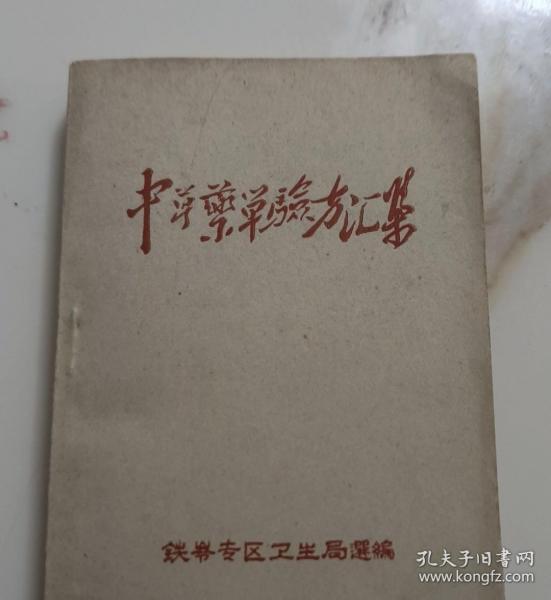 中草藥单驗方汇集
铁岺专区卫生局選編
孔夫子旧书网
www.kongfz.com